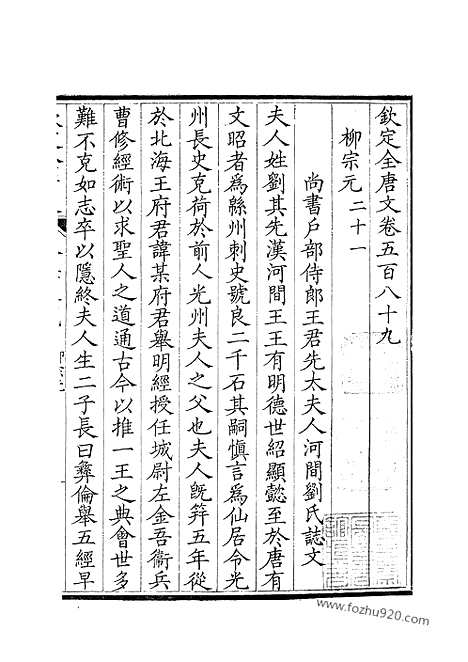 欽定全唐文卷五百八十九
柳宗元二十一
尚書戶部侍郎王君先太夫人河間劉氏誌文
夫人姓劉其先漢河間王王有明德世紹顯懿至於唐有
文昭者為縣州刺史號良二千石其嗣慎言為仙居令光
州長史克荷於前人光州夫人之父也夫人旣笄五年從
於北海王府君諱某府君舉明經授任城尉左金吾衞兵
曹修經術以求聖人之道通古今以推一王之典會世多
難不克如志卒以隱終夫人生二子長曰彝倫舉五經早
www.fozhu920.com